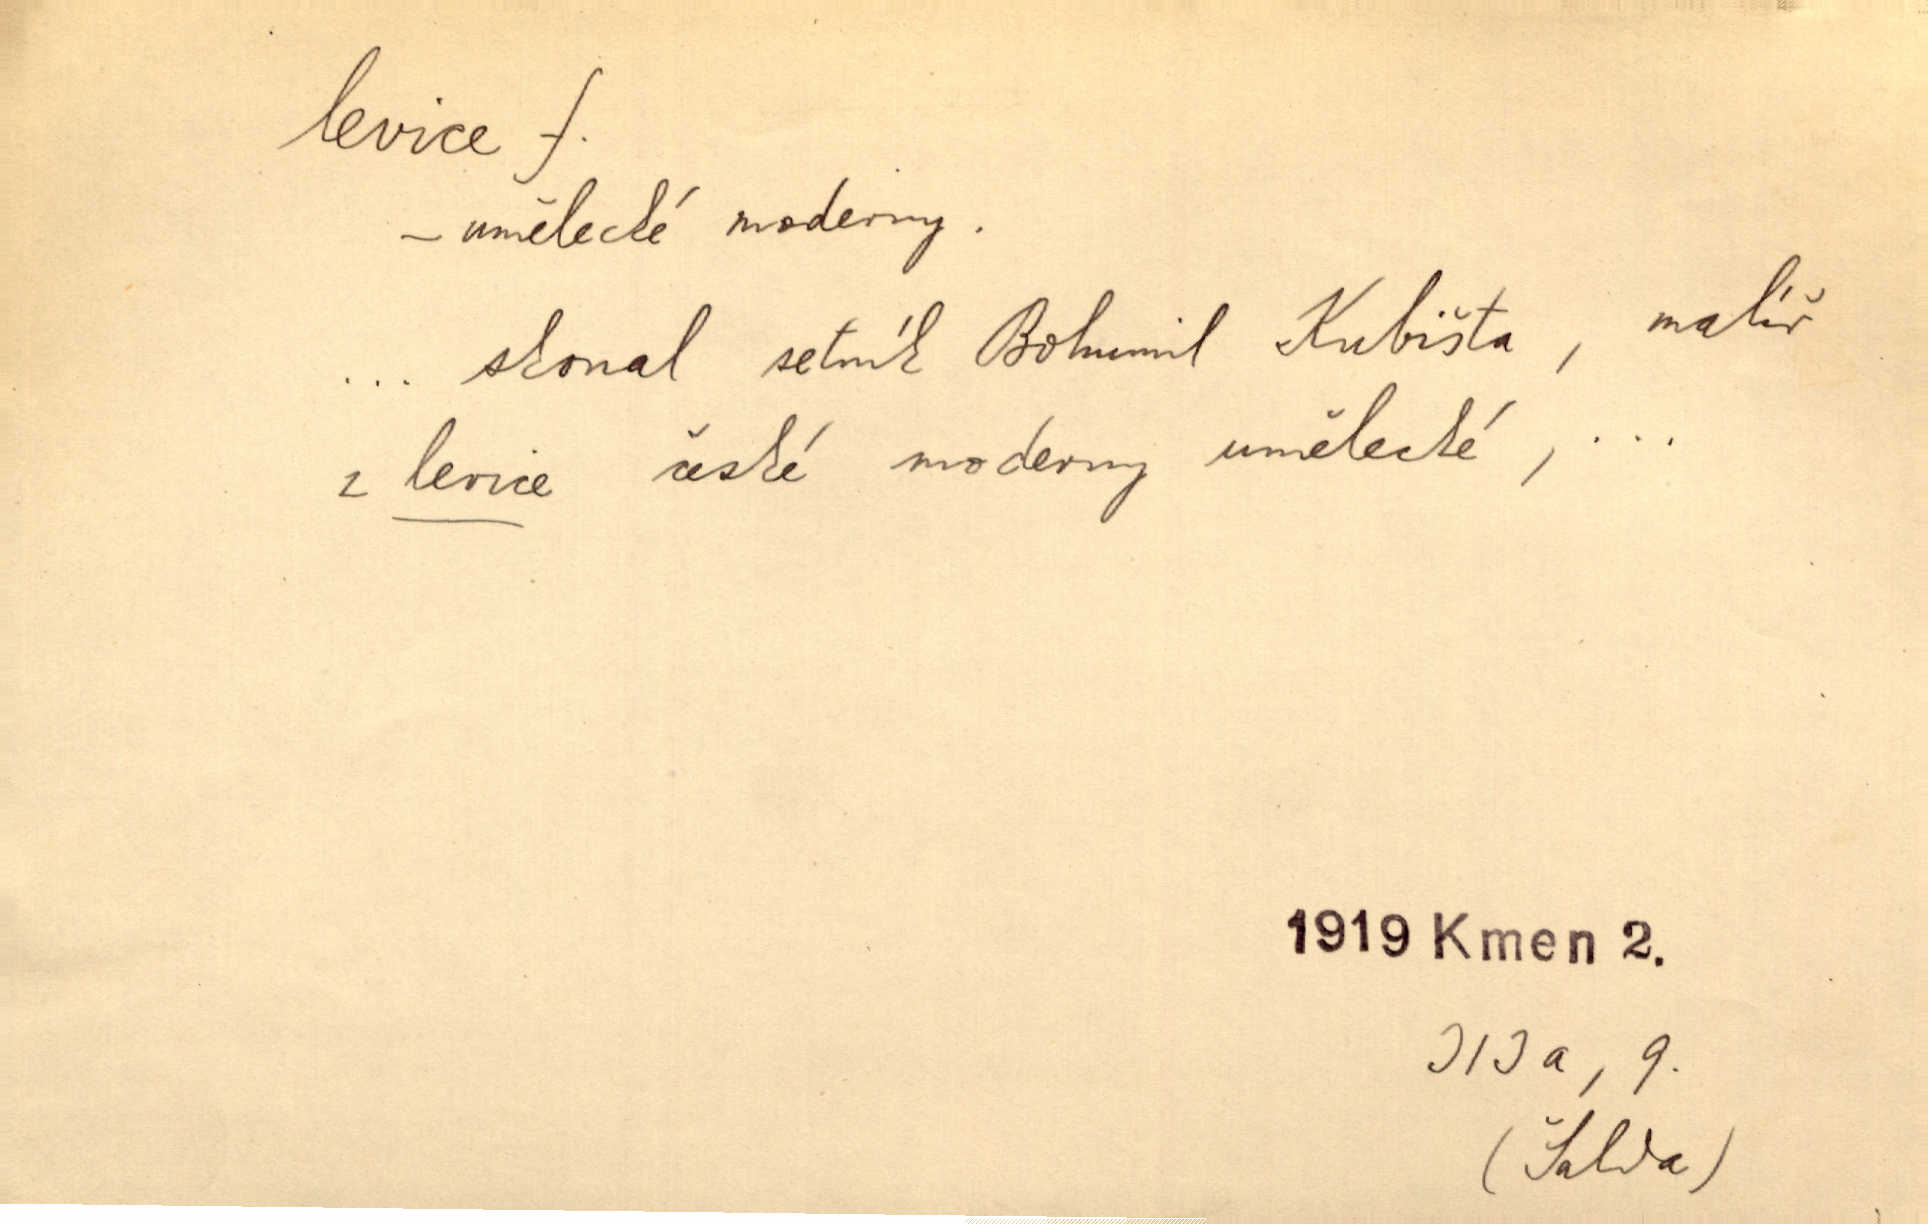 levice f.
- umělecké moderny.
... skonal setník Bohumil Kubišta, malíř
z levice české moderny umělecké, ...
1919 Kmen 2.
313a, 9.
(Šalda)